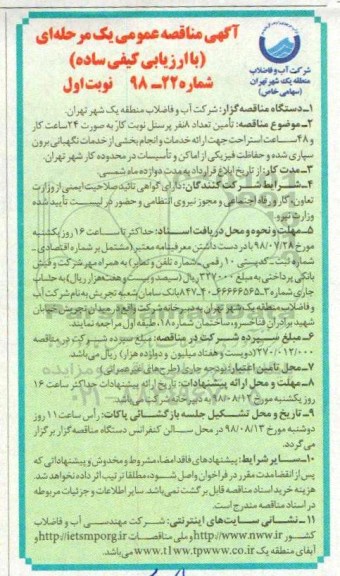 آگهی مناقصه عمومی یک مرحله‌ای
(با ارزیابی کیفی ساده)
شماره ۲۲ـ ۹۸ نوبت اول
شرکت آب و فاضلاب
منطقه یک شهر تهران
(سهامی خاص)
۱ـ دستگاه مناقصه گزار: شرکت آب و فاضلاب منطقه یک شهر تهران.
۲ـ موضوع مناقصه: تأمین تعداد ۸نفر پرسنل نوبت کار به صورت ۲۴ساعت کار
و ۴۸ساعت استراحت جهت ارائه خدمات و انجام بخشی از خدمات نگهبانی برون
سپاری شده و حفاظت فیزیکی از اماکن و تأسیسات در محدوده کار شهر تهران.
۳ـ مدت کار: از تاریخ ابلاغ قرارداد به مدت دوازده ماه شمسی.
۴ـ شرایط شرکت کنندگان: دارای گواهی تائید صلاحیت ایمنی از وزارت
تعاون، کار و رفاه اجتماعی و مجوز نیروی انتظامی و حضور در لیست تأیید شده
وزارت نیرو.
۵ـ مهلت و نحوه و محل دریافت اسناد: حداکثر تا ساعت ۱۶ روز یکشنبه
مورخ ۹۸/۰۷/۲۸ با در دست داشتن معرفینامه معتبر (مشتمل بر شماره اقتصادی ـ
شماره ثبت ـ کدپستی ۱۰ رقمی ـ شماره تلفن و نمابر) به همراه مهر شرکت و فیش
بانکی پرداختی به مبلغ ۳۳۷۰۰۰ ریال (سیصد و سی و هفت هزار ریال) به حساب
جاری شماره ۳ـ۶۶۶۶۶۵۶۵ـ۴۰ـ۸۴۷ بانک سامان شعبه تجریش به نام شرکت آب
و فاضلاب منطقه یک شهر تهران به دبیرخانه شرکت واقع در میدان تجریش، خیابان
شهید برادران فناخسرو، ساختمان شماره ۱۸، طبقه اول مراجعه نمایند.
۶ـ مبلغ سپرده شرکت در مناقصه: مبلغ سپرده شرکت در مناقصه
۲۷۰/۰۱۲/۰۰۰ (دویست و هفتاد میلیون و دوازده هزار) ریال می‌باشد.
۷ـ محل تأمین اعتبار: بودجه جاری (طرح‌های غیرعمرانی)
۸ـ مهلت و محل ارائه پیشنهادات: تاریخ ارائه پیشنهادات حداکثر ساعت ۱۶
روز یکشنبه مورخ ۹۸/۰۸/۱۲ به دبیرخانه شرکت می‌باشد.
۹ـ تاریخ و محل تشکیل جلسه بازگشائی پاکات: رأس ساعت ۱۱ روز
دوشنبه مورخ ۹۸/۰۸/۱۳ در محل سالن کنفرانس دستگاه مناقصه گزار برگزار
می‌گردد.
۱۰ـ سایر شرایط: پیشنهادهای فاقد امضا، مشروط و مخدوش و پیشنهاداتی که
پس از انقضا مدت مقرر در فراخوان واصل شود، مطلقا ترتیب اثر داده نخواهد شد.
هزینه خرید اسناد مناقصه قابل برگشت نمی‌باشد. سایر اطلاعات و جزئیات مربوطه
در اسناد مناقصه مندرج است.
۱۱ـ نشانی سایت‌های اینترنتی: شرکت مهندسی آب و فاضلاب
کشور http://www.nww.ir و ملی مناقصات http://ietsmporg.ir و
آبفای منطقه یک www.t1ww.tpww.co.ir می‌باشد.